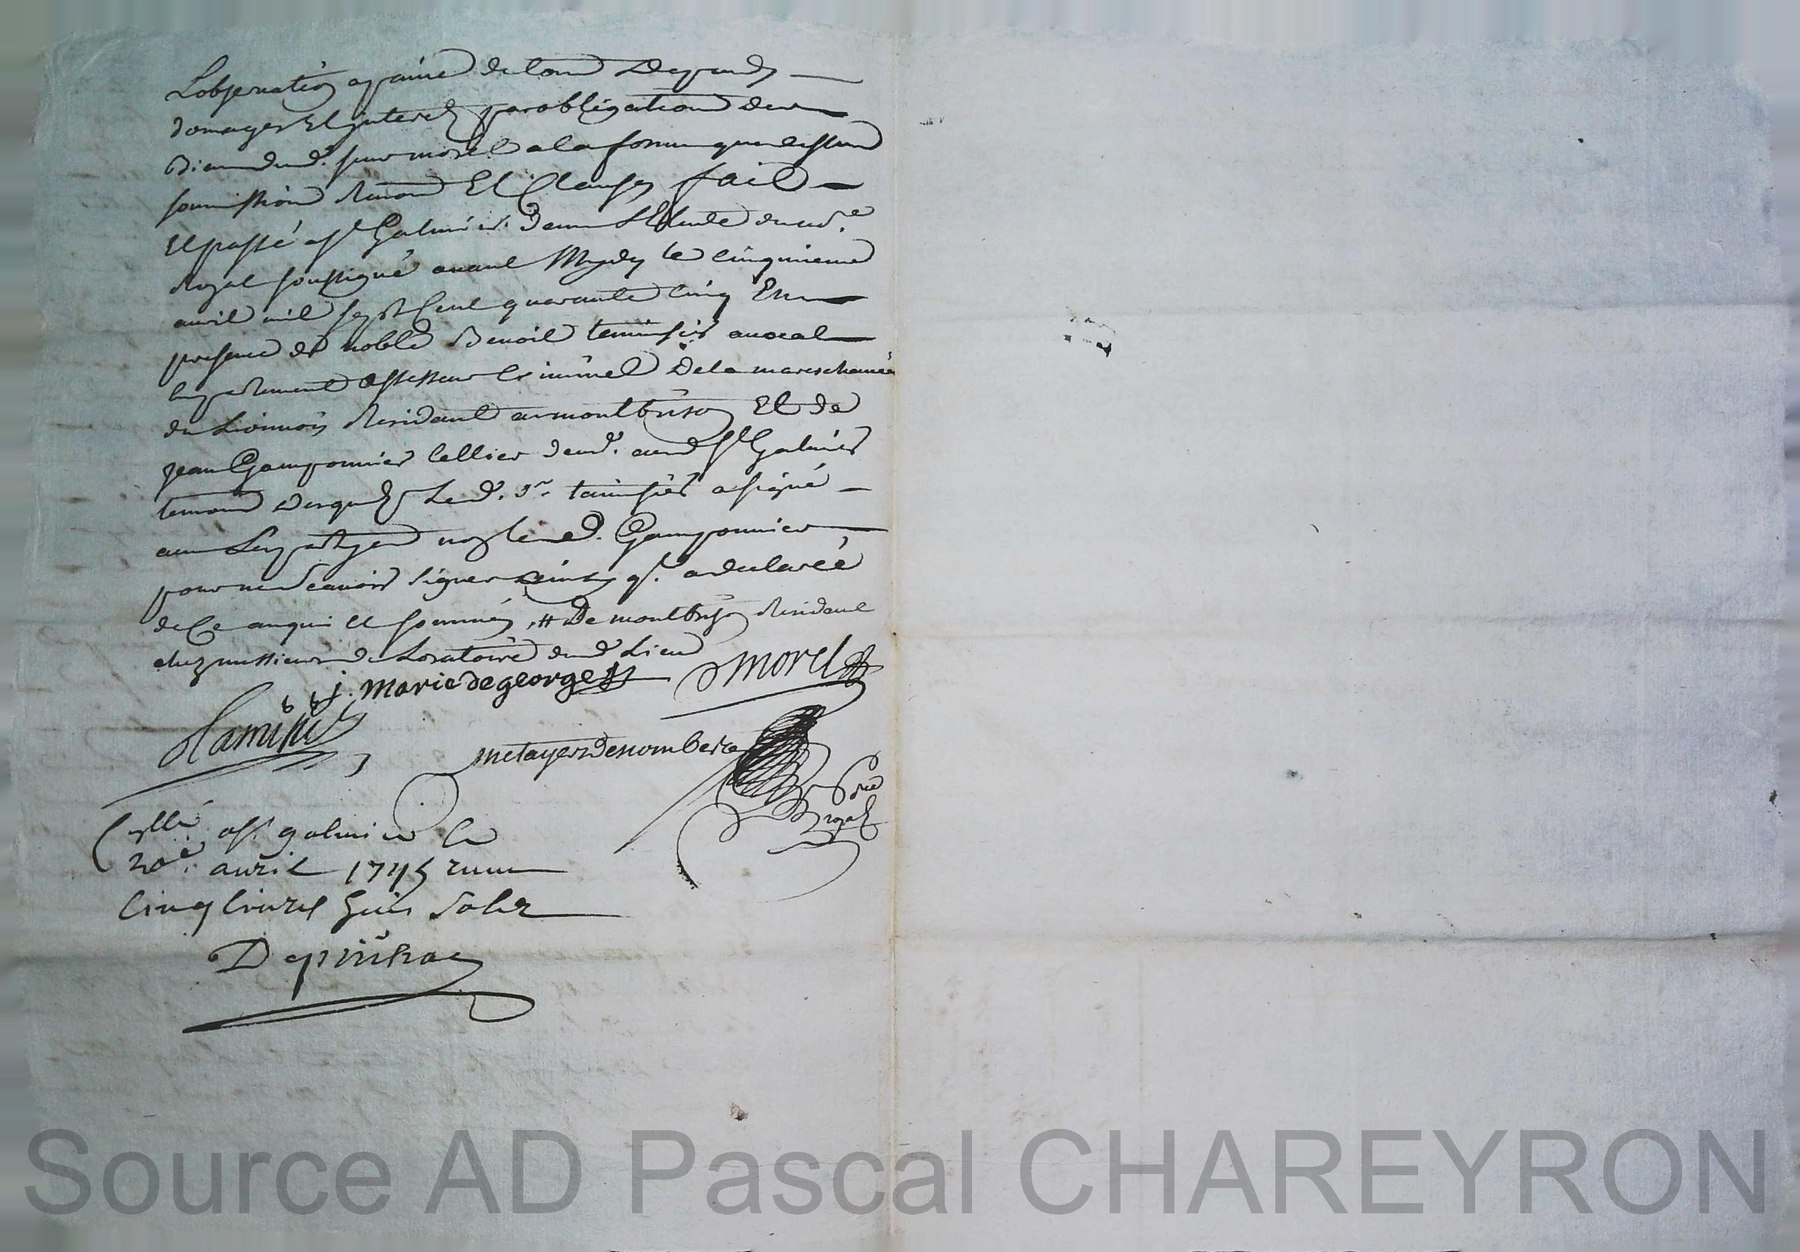 L'observation a peine de tous Depends
domages Et interets par obligation de
Biens dud. sieur morel a la forme
soumission Renon Et Clauses fait
Et passé a St Galmier dans L'Etude du no.re
Royal soussigné avant Mydy le cinquieme
avril mil sept Cent quarante cinq En
presence de noble Benoit tamisier avocat
En parlement assesseur Criminel De la mareschaussée
du Lionnois Residant a montbrison Et de
Jean Gamponnier Cellier dem.t aud St Galmier
temoins Desquels Led. Sr. tamisier a signé
avec Les parties non led. Gamponnier
pour ne scavoir signer ainsy q'l a declaré
de Ce enquis Et sommés, # De montbrison Residant
chez messieurs de Loratoire dud Lieu
j. Marie degeorge morel
tamisier
metayer Denombre
no.re royal
Cllé a St galmier le
20e. avril 1745 reçu
Cinq livres huit sols
Depinhac
Source AD Pascal CHAREYRON